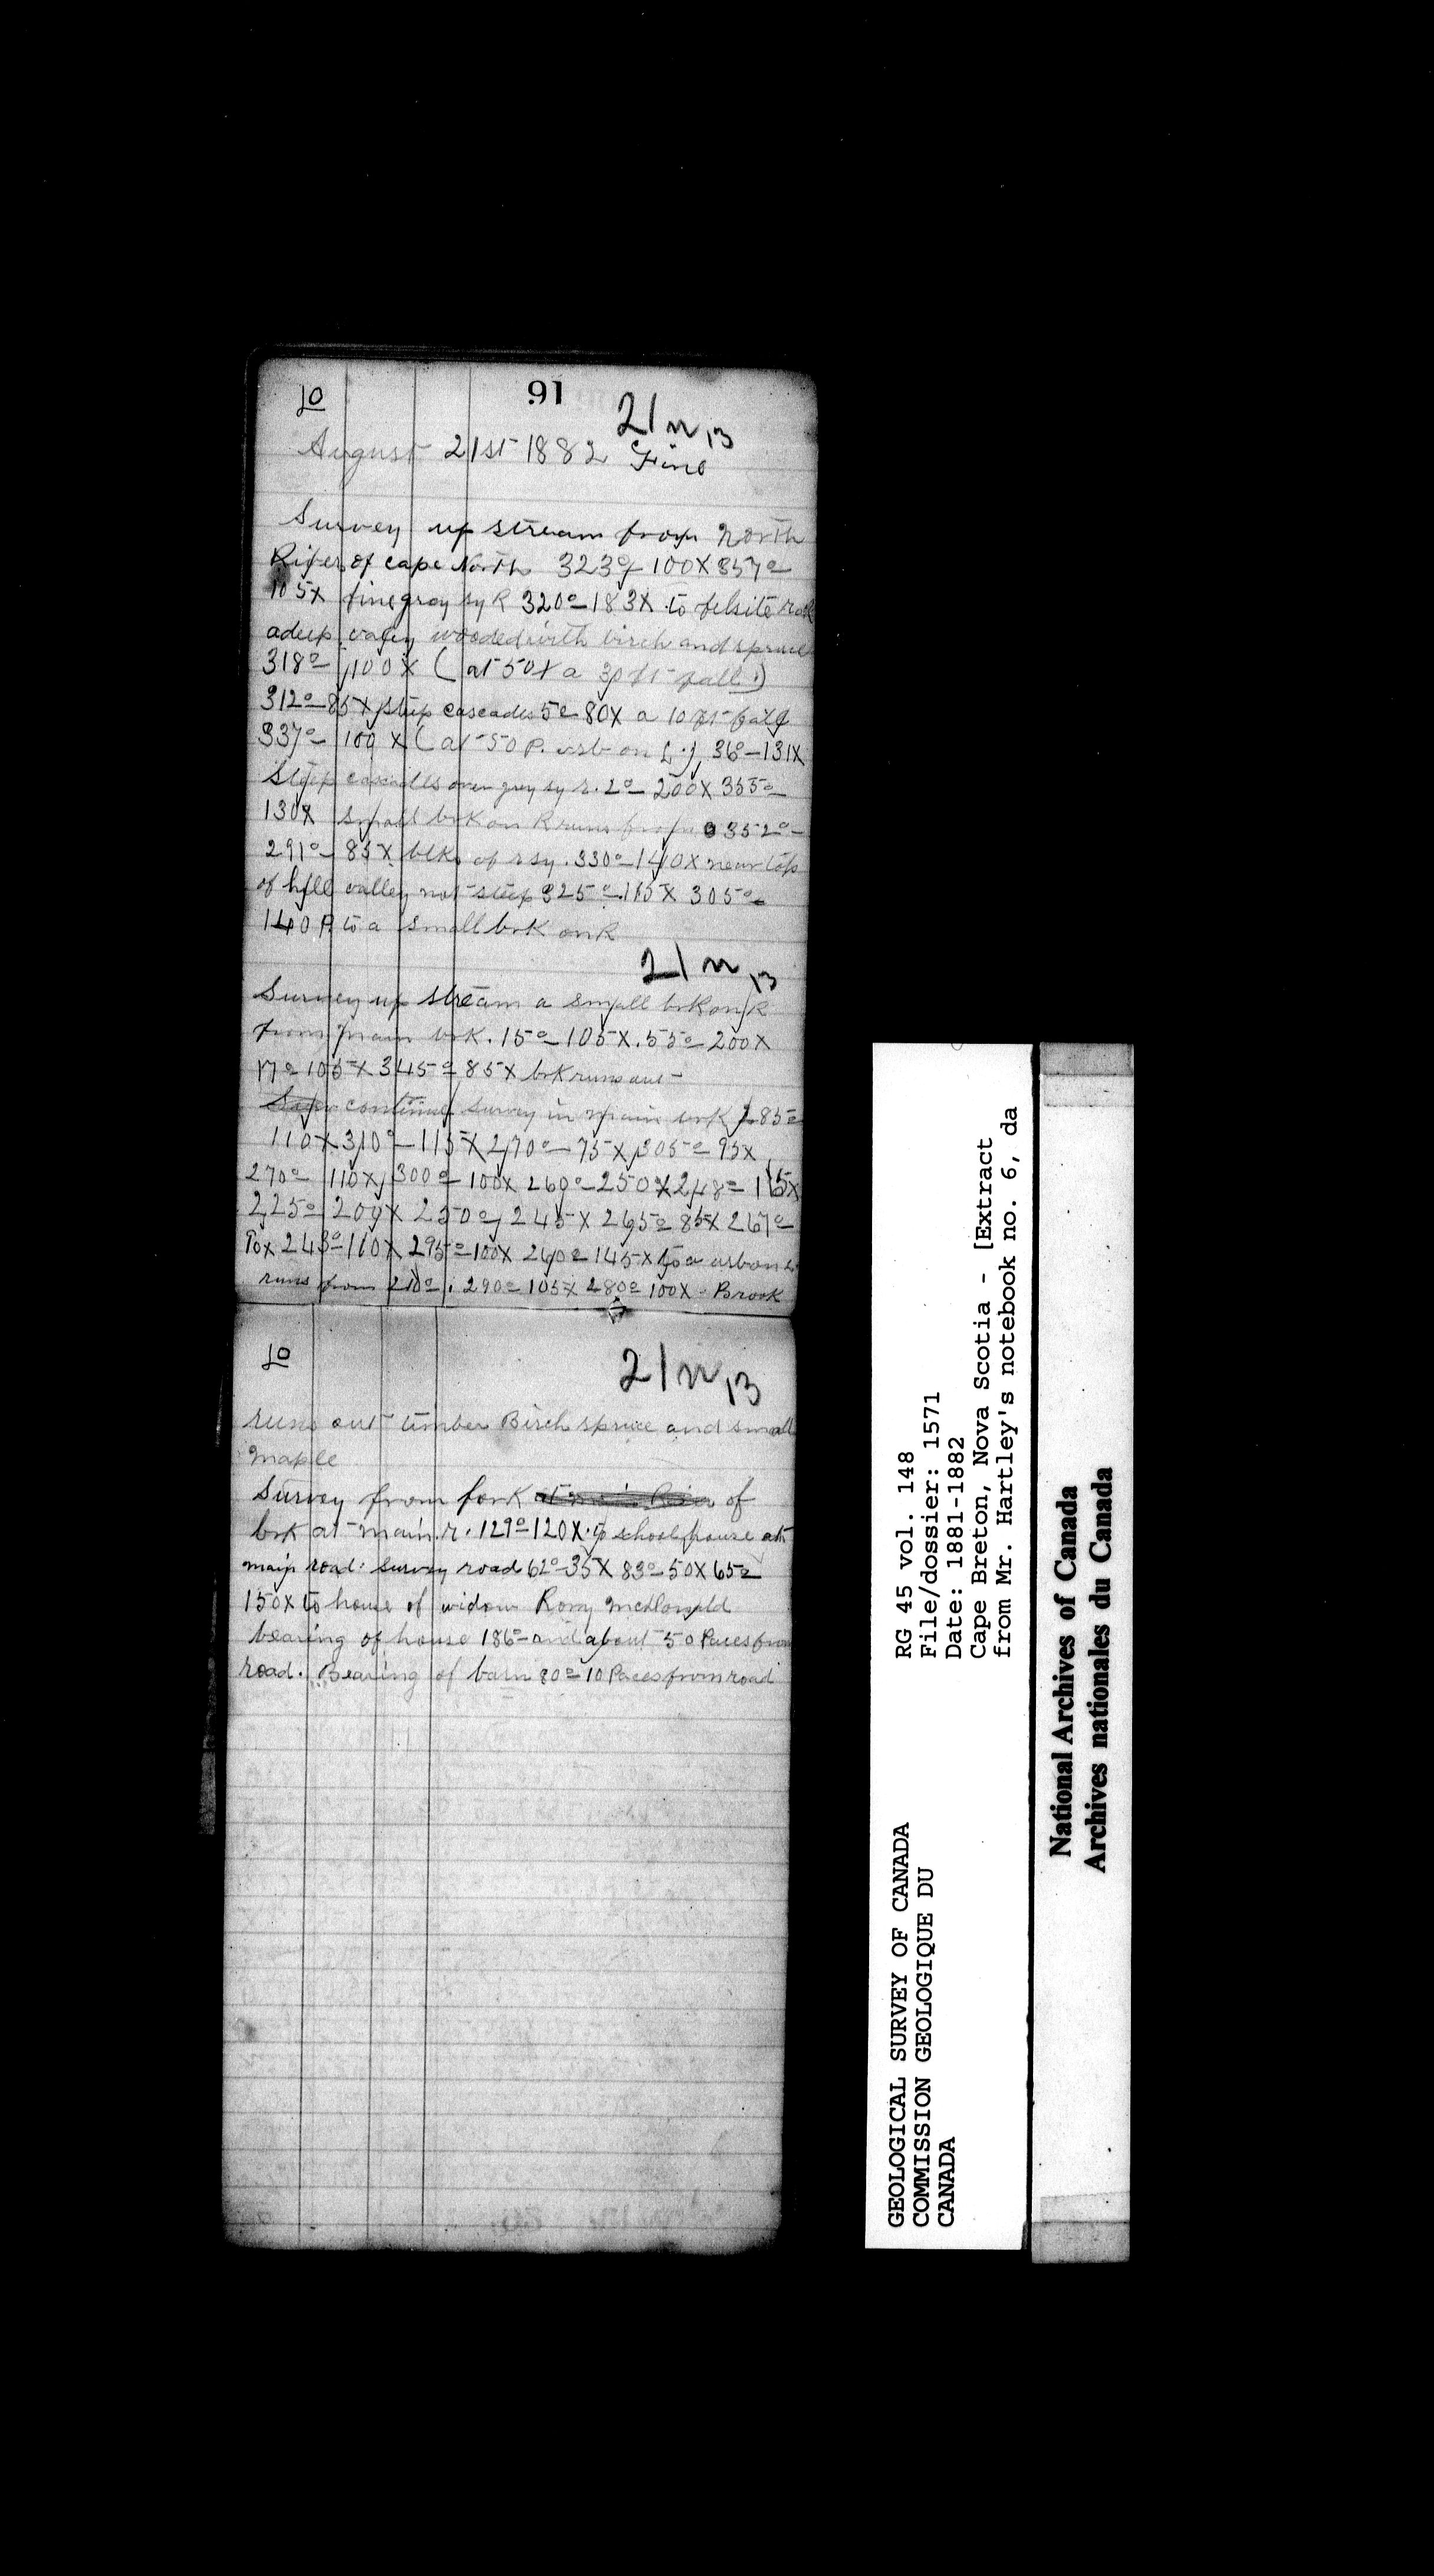 10
91
21 N 13
August 21st 1882 Fine
Survey up stream from North
River of cape North 323°- 100X 357°-
105X fine gray sy R 320°-183X to felsite rock
a deep valley wooded with birch and spruce
318°- 100X (at 50X a 30 ft fall.)
312°-85X steep cascades 5°- 80X a 10 ft fall
337°- 100X (at 50 P. a sb on L.), 36°-131X
Steep cascades over grey sy r. 2°- 200X 355°-
130X small brk on R runs from 352°-
291°- 85X blks of r sy. 330°-140X near top
of hill valley not steep 325°-115X 305°-
140 P to a small brk on R
21 N 13
Survey up stream a small brk on R
from main brk. 15°-105X. 55°-200X
17°-105X 345°-85X brk runs out
continue survey in main brk 285°-
110X 310°-115X 270°-75X 305°-95X
270°- 110X, 300°-100X 269°-250X 248°-115X
225°- 209X 250°- 245X 265°-85X 267°-
243°-110X 295°-100X 260°-145X to a sb on L
runs from 210°. 290°-105X 280°-100X - Brook
10
21 N 13
runs out timber Birch spruce and small
maple
Survey from fork of
brk at main r. 129°-120X to schoolhouse at
main road: survey road 62°-35X 83°-50X 65°-
150X to house of widow Rory McDonald
bearing of house 186°- and about 50 Paces from
road. Bearing of barn 80°-10 Paces from road
GEOLOGICAL SURVEY OF CANADA
COMMISSION GEOLOGIQUE DU
CANADA
RG 45 vol. 148
File/dossier: 1571
Date: 1881-1882
Cape Breton, Nova Scotia - [Extract
from Mr. Hartley's notebook no. 6, da
National Archives of Canada
Archives nationales du Canada